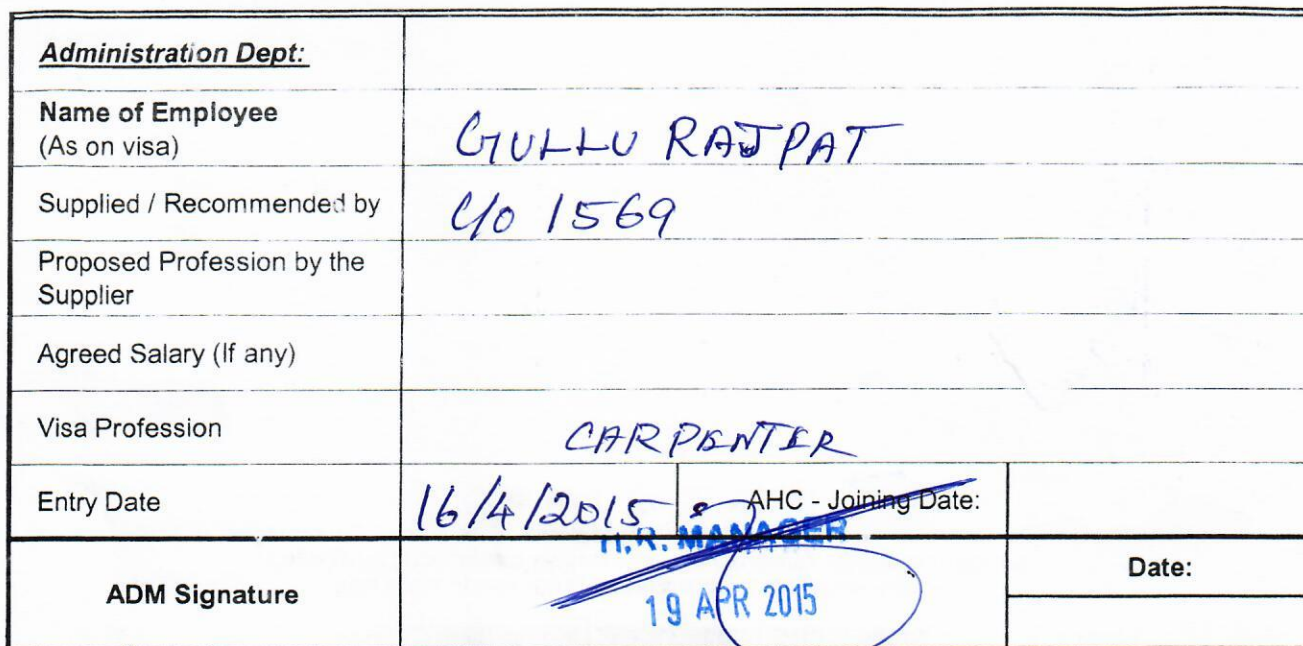 Administration Dept:
Name of Employee
(As on visa)
GULLU RAJPAT
Supplied / Recommended by
C/o 1569
Proposed Profession by the
Supplier
Agreed Salary (If any)
Visa Profession
CARPENTER
Entry Date
16/4/2015
AHC - Joining Date:
H.R. MANAGER
ADM Signature
19 APR 2015
Date: